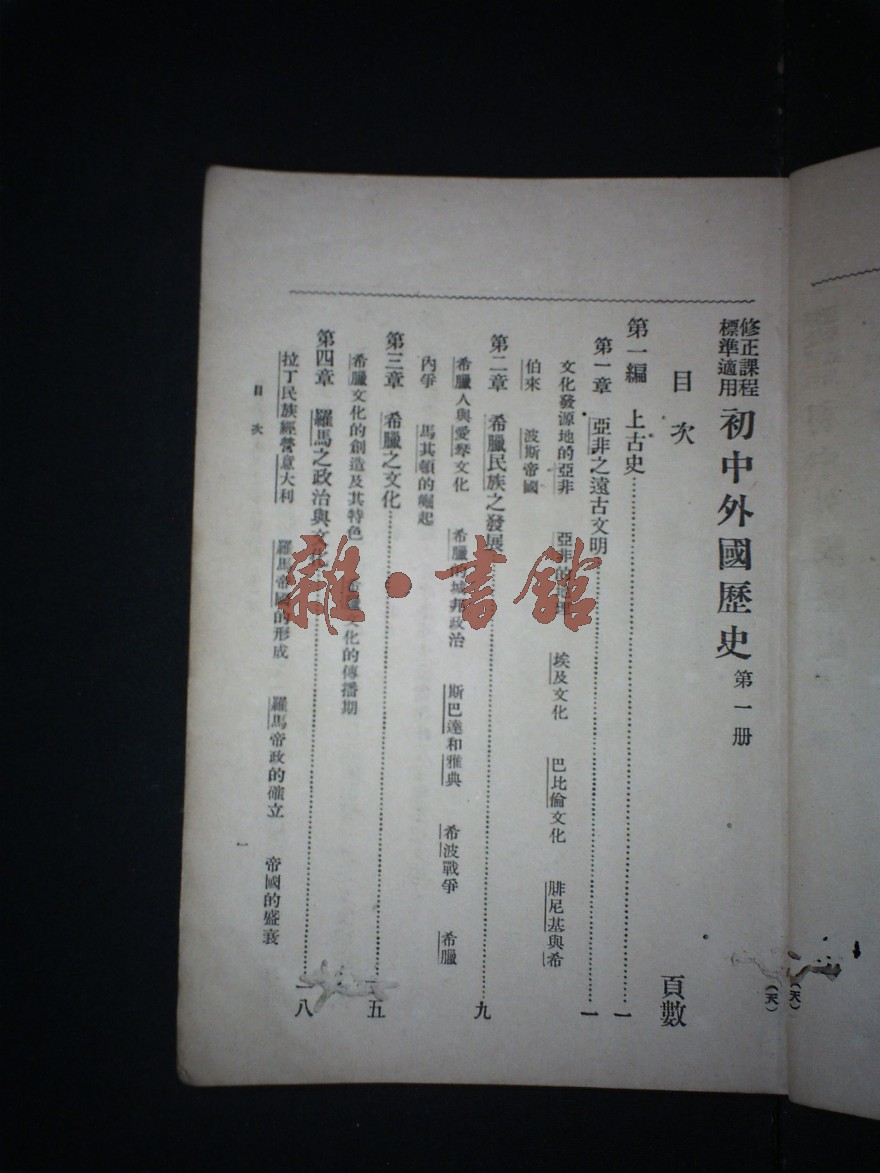 修正課程
標準適用
初中外國歷史 第一册
目次
頁數
第一編 上古史……一
第一章 亞非之遠古文明……一
文化發源地的亞非 亞非的 埃及文化 巴比倫文化 腓尼基與希
伯來 波斯帝國
第二章 希臘民族之發展……九
希臘人與愛琴文化 希臘的城邦政治 斯巴達和雅典 希波戰爭 希臘
內爭 馬其頓的崛起
第三章 希臘之文化……一五
希臘文化的創造及其特色 希臘文化的傳播期
第四章 羅馬之政治與文化……一八
拉丁民族經營意大利 羅馬帝國的形成 羅馬帝政的確立 帝國的盛衰
目次
一
(天)
(天)
雜·書館